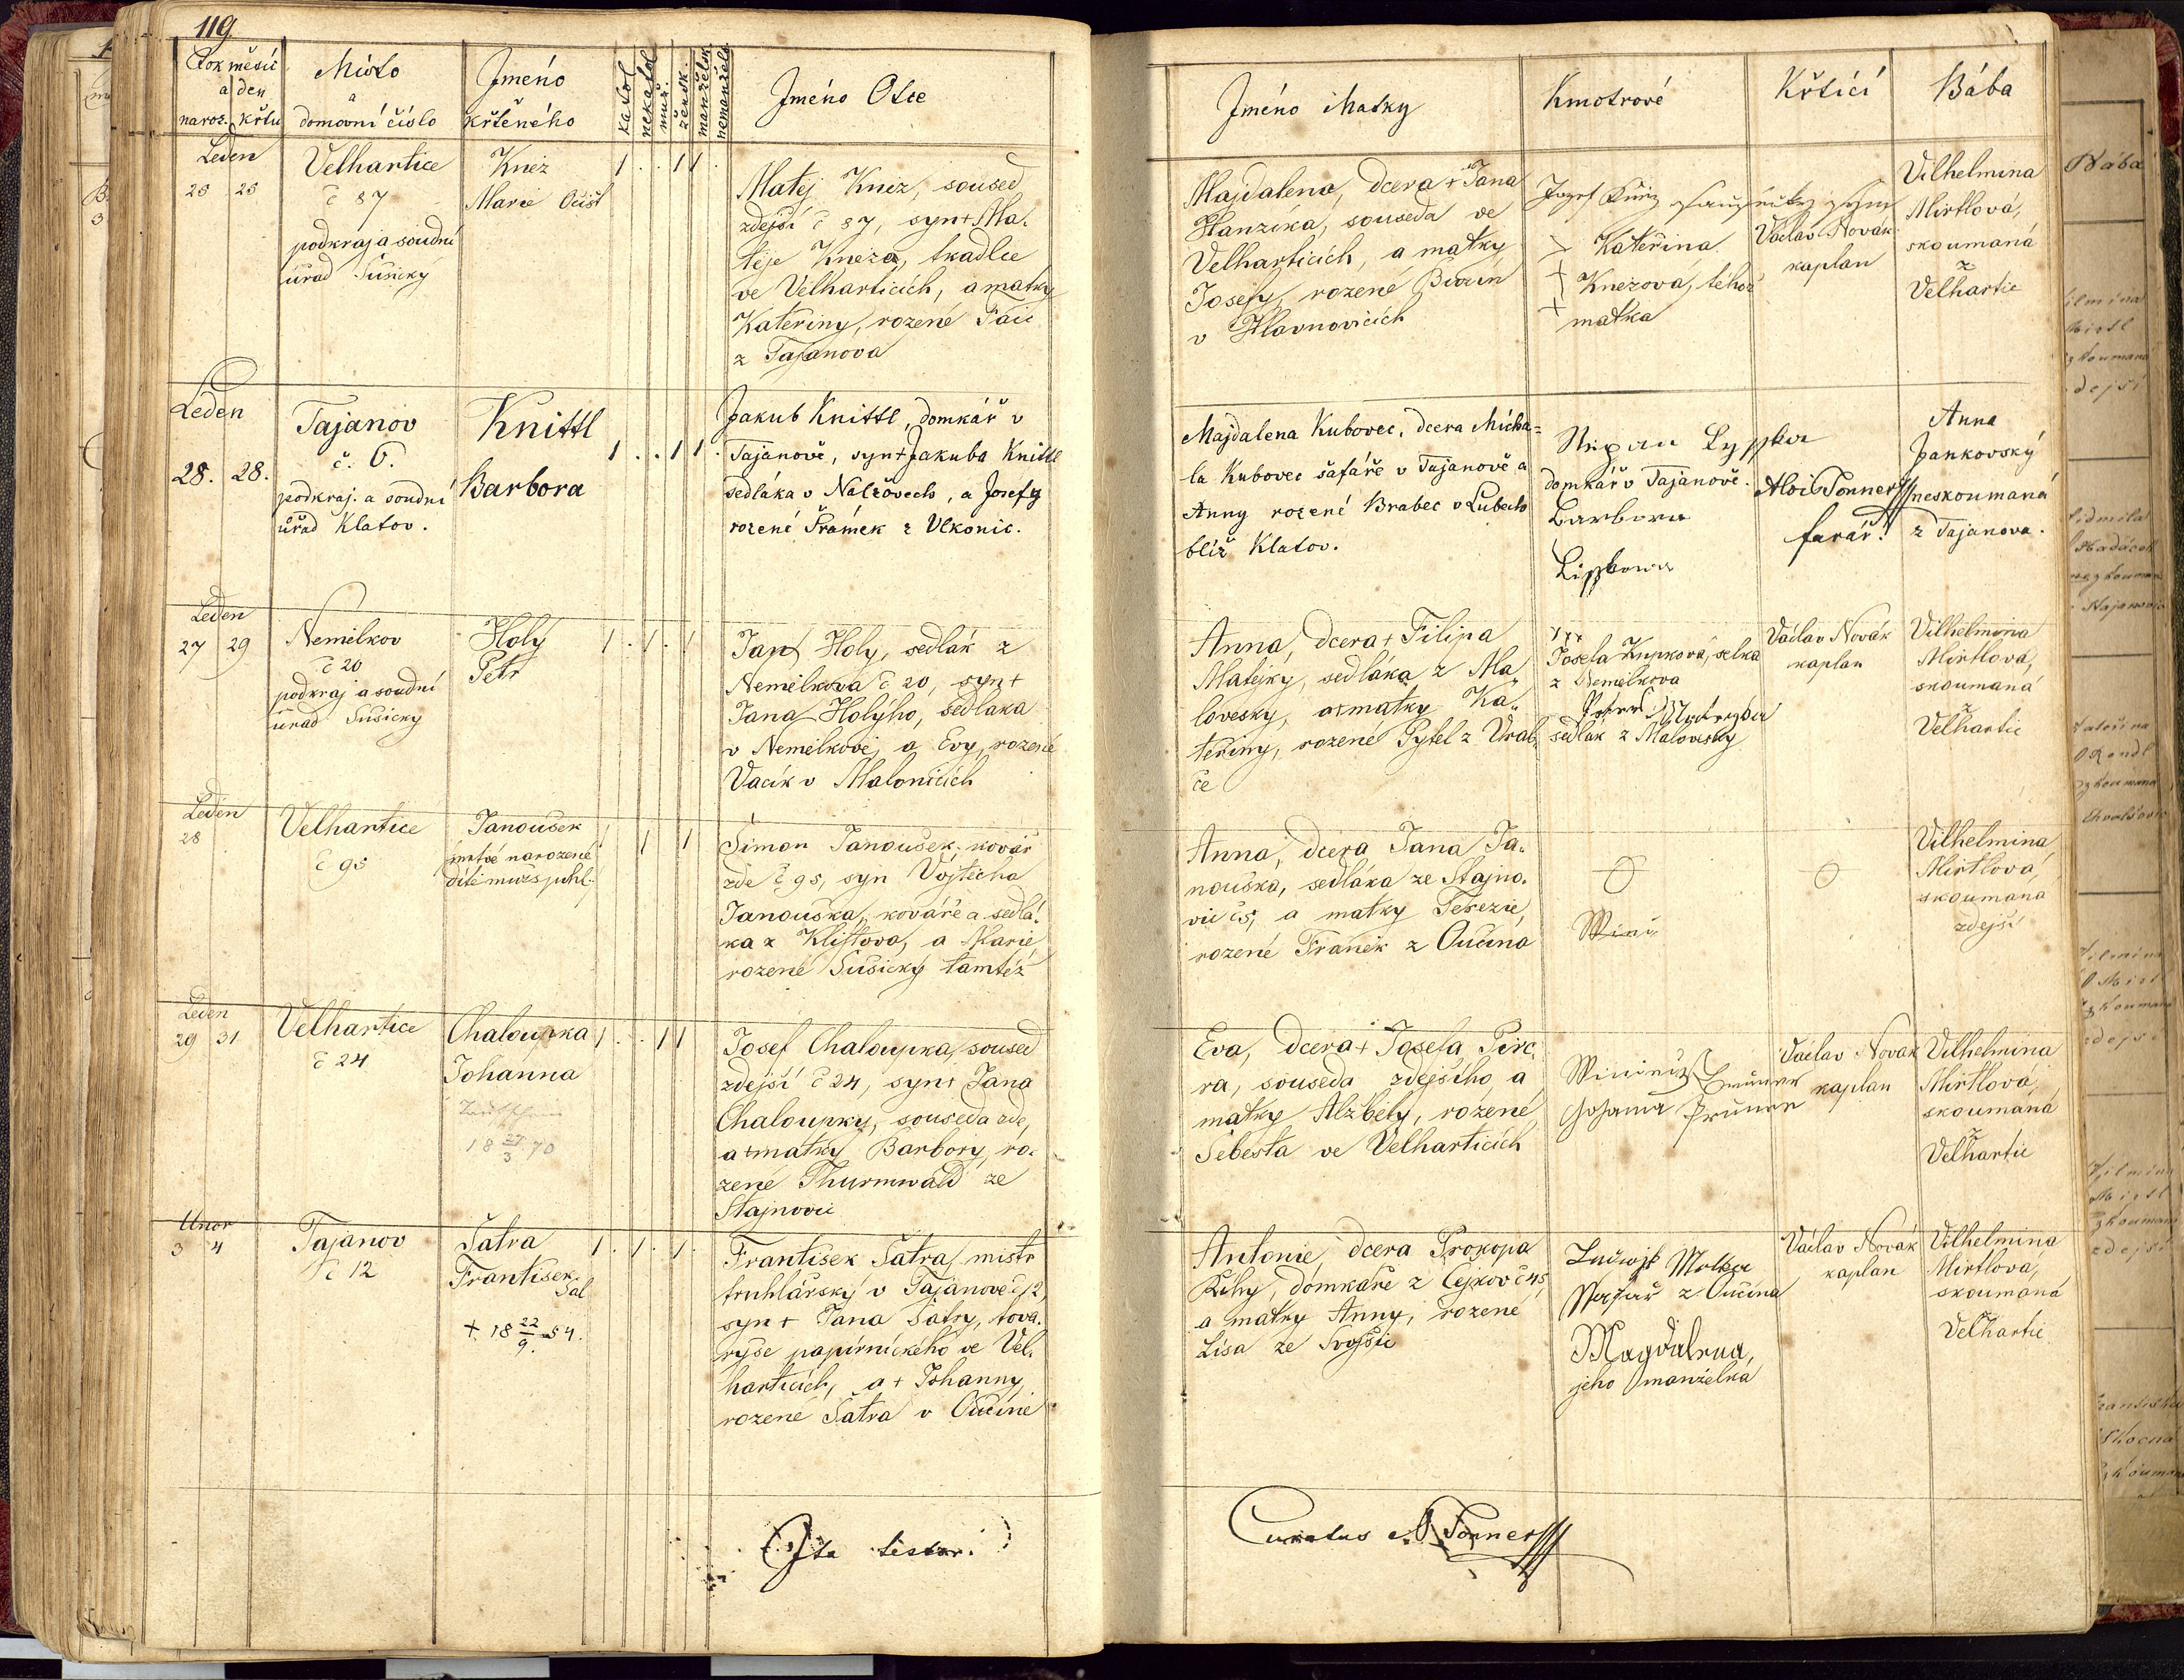 119
Rok měsíc
a den
naroz. křtu
Místo
a
domovní číslo
Jméno
křtěného
katol
nekatol
muž.
žensk.
manželsk
nemanžels
Jméno Otce
Jméno Matky
Kmotrové
Křtící
Bába
Leden
25 25
Velhartice
č 87
podkraj a soudní
úřad Sušický
Knež
Marie
1 . . 1 1 .
Matěj Knež, soused
zdejší č 87, syn + Ma-
těje Kneža, tkadlce
ve Velharticích, a matky
Kateřiny, rozené
z Tajanova
Majdalena, dcera + Jana
Hanzíka, souseda ve
Velharticích, a matky
Josefy, rozené
v Hlavnovicích
Josef
Kateřina
Knežova, téhož
matka
Václav Novák
kaplan
Vilhelmina
Mirtlová,
skoumaná
z
Velhartic
Leden
28. 28.
Tajanov
č. 6.
podkraj. a soudní
úřad Klatov.
Knittl
Barbora
1 . . 1 1 .
Jakub Knittl, domkář v
Tajanově, syn + Jakuba Knittl
sedláka v Nalžovech, a Josefy
rozené Šrámek z Vlkonic.
Majdalena Kubovec, dcera Micha=
la Kubovec šafáře v Tajanově a
Anny rozené Brabec v Lubech
blíž Klatov.
domkář v Tajanově.
Barbora
Alois Tonner
farář.
Anna
Jankovský
neskoumaná
z Tajanova.
Leden
27 29
Nemilkov
č 20
podkraj a soudní
úřad Sušický
Holý
Petr
1 . 1 . 1
Jan Holy, sedlák z
Nemilkova č 20, syn +
Jana Holýho, sedláka
v Nemilkově, a Evy, rozené
Vacík v Malonicích
Anna, dcera + Filipa
Matějky, sedláka z Ma„
lovesky, a + matky Ka„
teřiny, rozené Pytel z Vrab„
če
xxx
Josefa Zupková, selka
z Nemilkova
sedlák z Malovesky
Václav Novák
kaplan
Vilhelmina
Mirtlová,
skoumaná
z
Velhartic
Leden
28
Velhartice
č 95
Janoušek
mrtvě narozené
dítě mužs. pohl.
1 1 1
Šimon Janoušek kovář
zde č 95, syn Vojtěcha
Janouška, kováře a sedlá-
ka z Klištova, a Marie
rozené Sušický tamtéž
Anna, dcera Jana Ja-
nouška, sedláka ze Stajno-
vic č 5, a matky Terezie,
rozené Franěk z Oučína
Vilhelmina
Mirtlová,
skoumaná
zdejší
Leden
29 31
Velhartice
č 24
Chaloupka
Johanna
18 27/3 70
1 . . 1 1
Josef Chaloupka, soused
zdejší č 24, syn + Jana
Chaloupky, souseda zde,
a + matky Barbory, ro-
zené Thurmwald ze
Stajnovic
Eva, dcera + Josefa
ra, souseda zdejšího, a
matky Alžběty, rozené
Šebesta ve Velharticích
Václav Novák
kaplan
Vilhelmina
Mirtlová,
skoumaná
z
Velhartic
Únor
3 4
Tajanov
č 12
Šatra
František
Sal
+ 18 22/9 54.
1 . 1 . 1 .
František Šatra, mistr
truhlářský v Tajanově č 12,
syn + Jana Šatry, tova-
ryše papírnického ve Vel-
harticích, a + Johanny
rozené Šatra v Oučíně
Antonie, dcera Prokopa
Říhy, domkáře z Čejkov č 45,
a matky Anny, rozené
Lisa ze Svojšic
z Oučína
Magdalena,
jeho manželka
Václav Novák
kaplan
Vilhelmina
Mirtlová,
skoumaná
Velhartic
Ita testor.
Curatus A Tonner